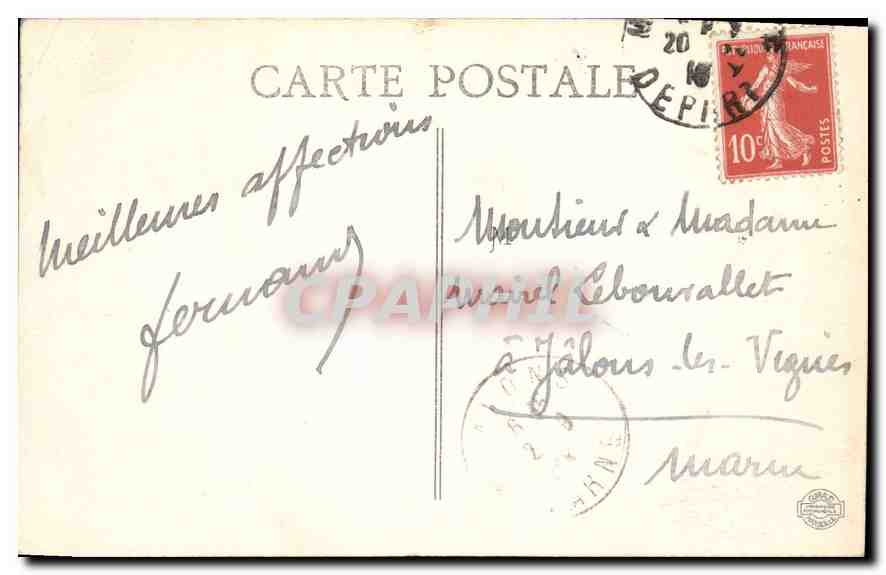 CARTE POSTALE
Meilleures affections
fernand
Monsieur & Madame
Marcel Lebourallet
à Jâlons-les-Vignes
Marne
RÉPUBLIQUE FRANÇAISE
10c
POSTES
20
18
DEPART
ARNE
CPAPHIL